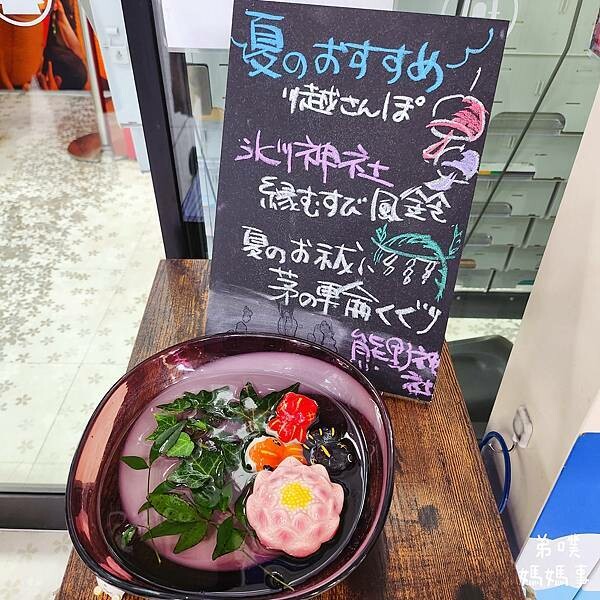 夏のおすすめ
川越さんぽ
氷川神社
縁むすび風鈴
夏のお祓い
茅の輪くぐり
熊野神
社
弟噗
媽媽事